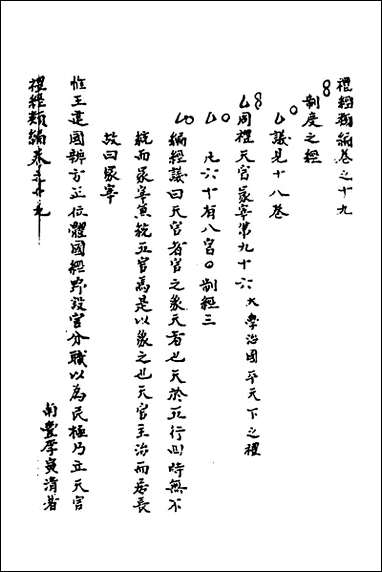 禮經類編卷之十九
制度之經
議見十八卷
周禮天官冢宰第九十六 大學治國平天下之禮
凡六十有八官○制經三
編經議曰天官者官之象天者也天於五行四時無不
統而冢宰兼統五官焉是以象之也天官主治而居長
故曰冢宰
惟王建國辨方正位體國經野設官分職以為民極乃立天官
禮經類編卷之十九
南豐李寅清著